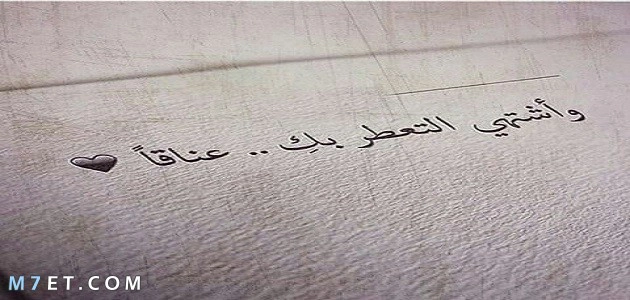 وأشتهي التعطر بكِ .. عناقاً
M7ET.COM